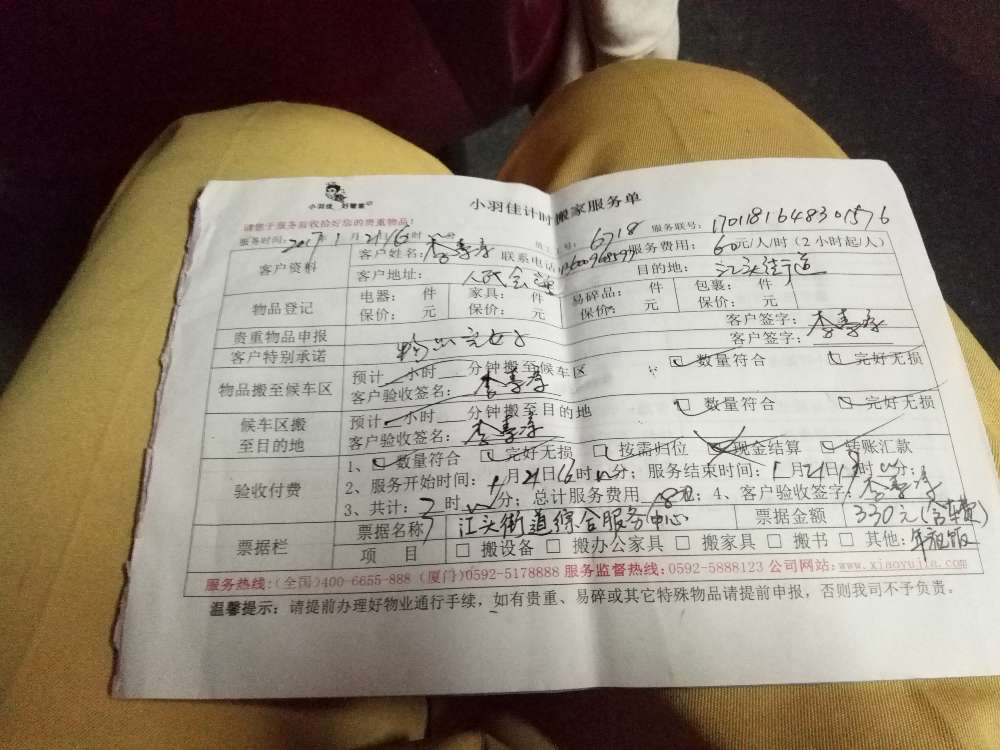 小羽佳 好管家
小羽佳计时搬家服务单
请您于服务前收拾好您的贵重物品！
服务时间：2017年1月21日16时 分 员工 号：6718 服务联号：1701181648301576
客户资料 客户姓名： 联系电话： 服务费用：60元/人/时（2小时起/人）
客户地址：人民会堂 目的地：江头街道
物品登记 电器： 件 家具： 件 易碎品： 件 包裹： 件
保价： 元 保价： 元 保价： 元 保价： 元
贵重物品申报 客户签字：
客户特别承诺 物品完好 客户签字：
物品搬至候车区 预计 小时 分钟搬至候车区 数量符合 完好无损
客户验收签名：
候车区搬至目的地 预计 小时 分钟搬至目的地 数量符合 完好无损
客户验收签名：
验收付费 1、 数量符合 完好无损 按需归位 现金结算 转账汇款
2、服务开始时间：1月21日16时 分；服务结束时间：1月21日 时 分；
3、共计：2时 分；总计服务费用 ；4、客户验收签字：
票据栏 票据名称 江头街道综合服务中心 票据金额 330元(含车费)
项 目 □ 搬设备 □ 搬办公家具 □ 搬家具 □ 搬书 □ 其他：
服务热线：(全国)400-6655-888 (厦门)0592-5178888 服务监督热线：0592-5888123 公司网站：www.xiaoyujia.com
温馨提示：请提前办理好物业通行手续，如有贵重、易碎或其它特殊物品请提前申报，否则我司不予负责。